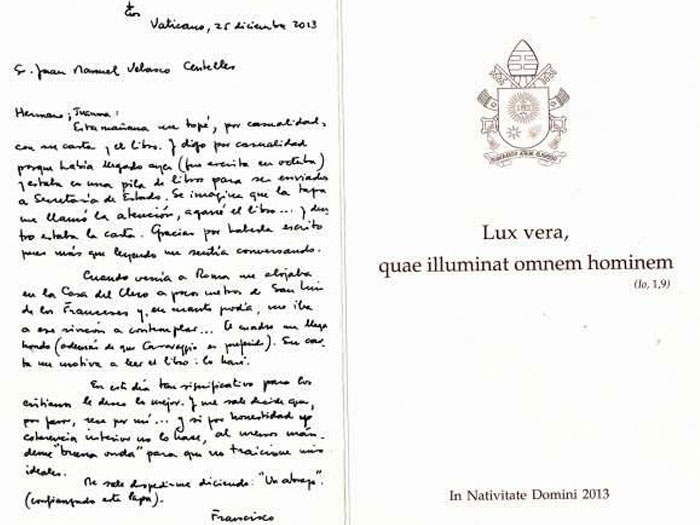 Vaticano, 25 diciembre 2013
Sr. Juan Manuel Velasco Centelles
Hermano, Juanma:
Esta mañana me topé, por casualidad,
con su carta y el libro. Y digo por casualidad
porque había llegado ayer (fue escrita en octubre)
y estaba en una pila de libros para ser enviados
a Secretaría de Estado. Se imagina que la tapa
me llamó la atención, agarré el libro... y den
tro estaba la carta. Gracias por haberla escrito
pues más que leyendo me sentía conversando.
Cuando venía a Roma me alojaba
en la Casa del Clero a pocos metros de San Luis
de los Franceses y, en cuanto podía, me iba
a ese rincón a contemplar... El cuadro me llega
hondo (además de que Caravaggio es preferido). Su car
ta me motiva a leer el libro: lo haré.
En este día tan significativo para los
cristianos le deseo lo mejor. Y me sale decirle que,
por favor, rece por mí... y si por honestidad y/o
coherencia interior no lo hace, al menos mán-
deme "buena onda" para que no traicione mis
ideales.
Me sale despedirme diciendo: "Un abrazo".
(confianzudo este Papa).
Francisco
Lux vera,
quae illuminat omnem hominem
(Io, 1,9)
In Nativitate Domini 2013